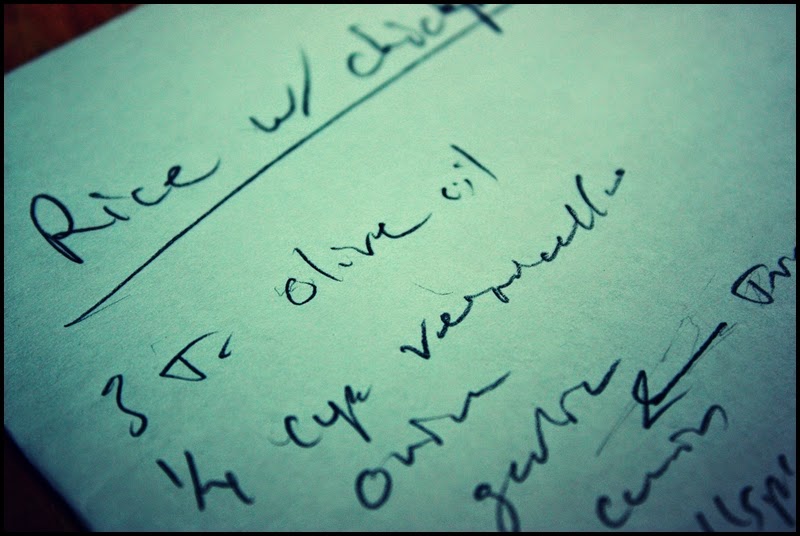 Rice w/
3 T. olive oil
1/4 cup vermicelli
onion
garlic
cumin